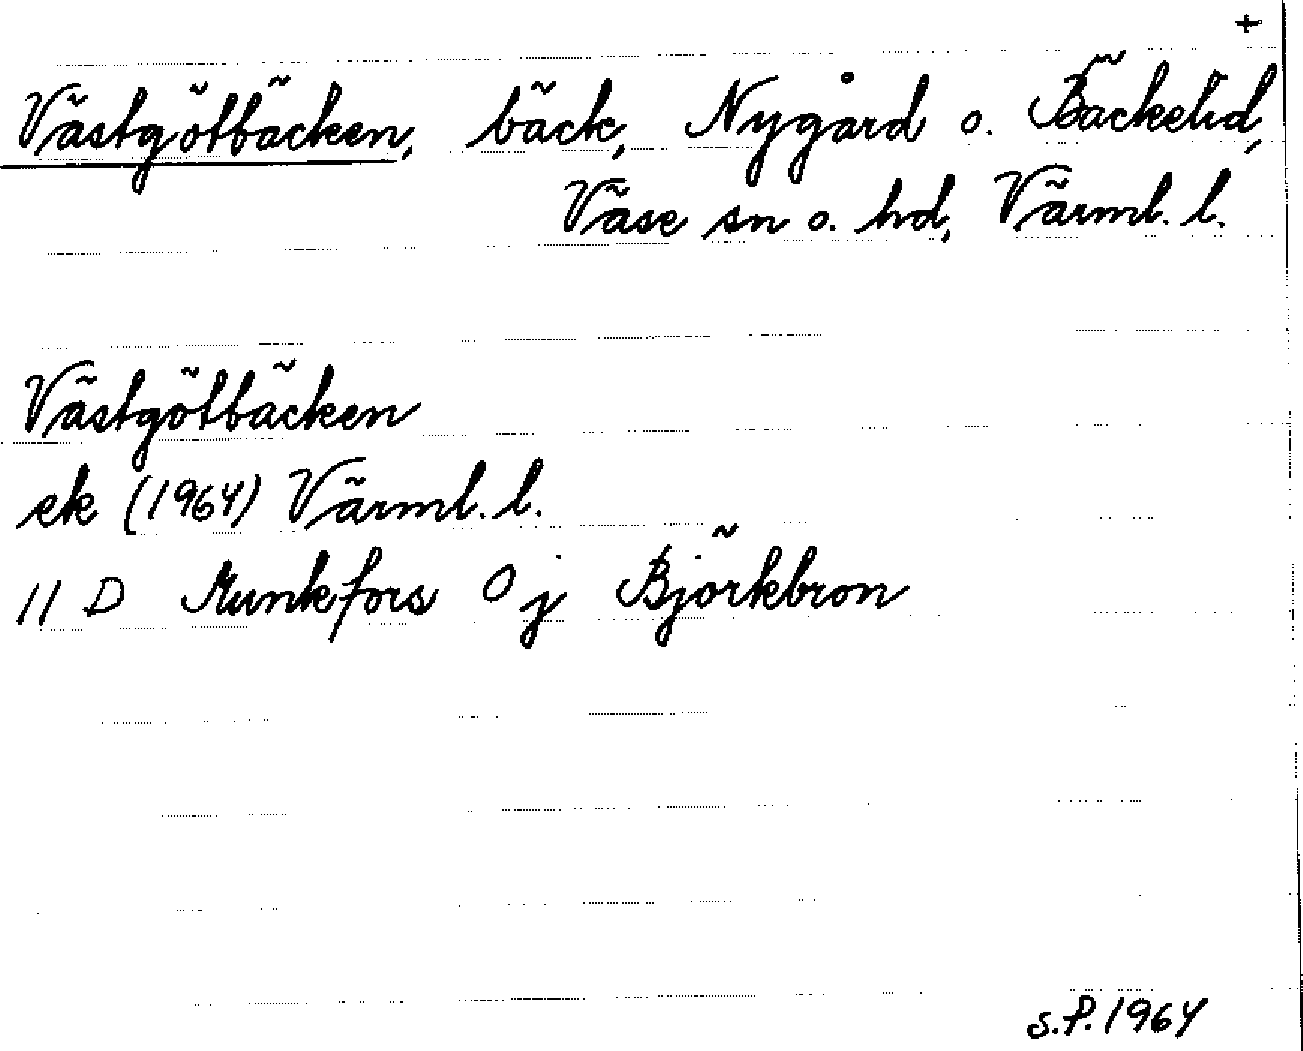 +
Västgötbäcken, bäck, Nygård o. Bäckelid,
Väse sn o. hd, Värml. l.
Västgötbäcken
ek (1964) Värml. l.
11 D Munkfors O j Björkbron
S.P. 1964